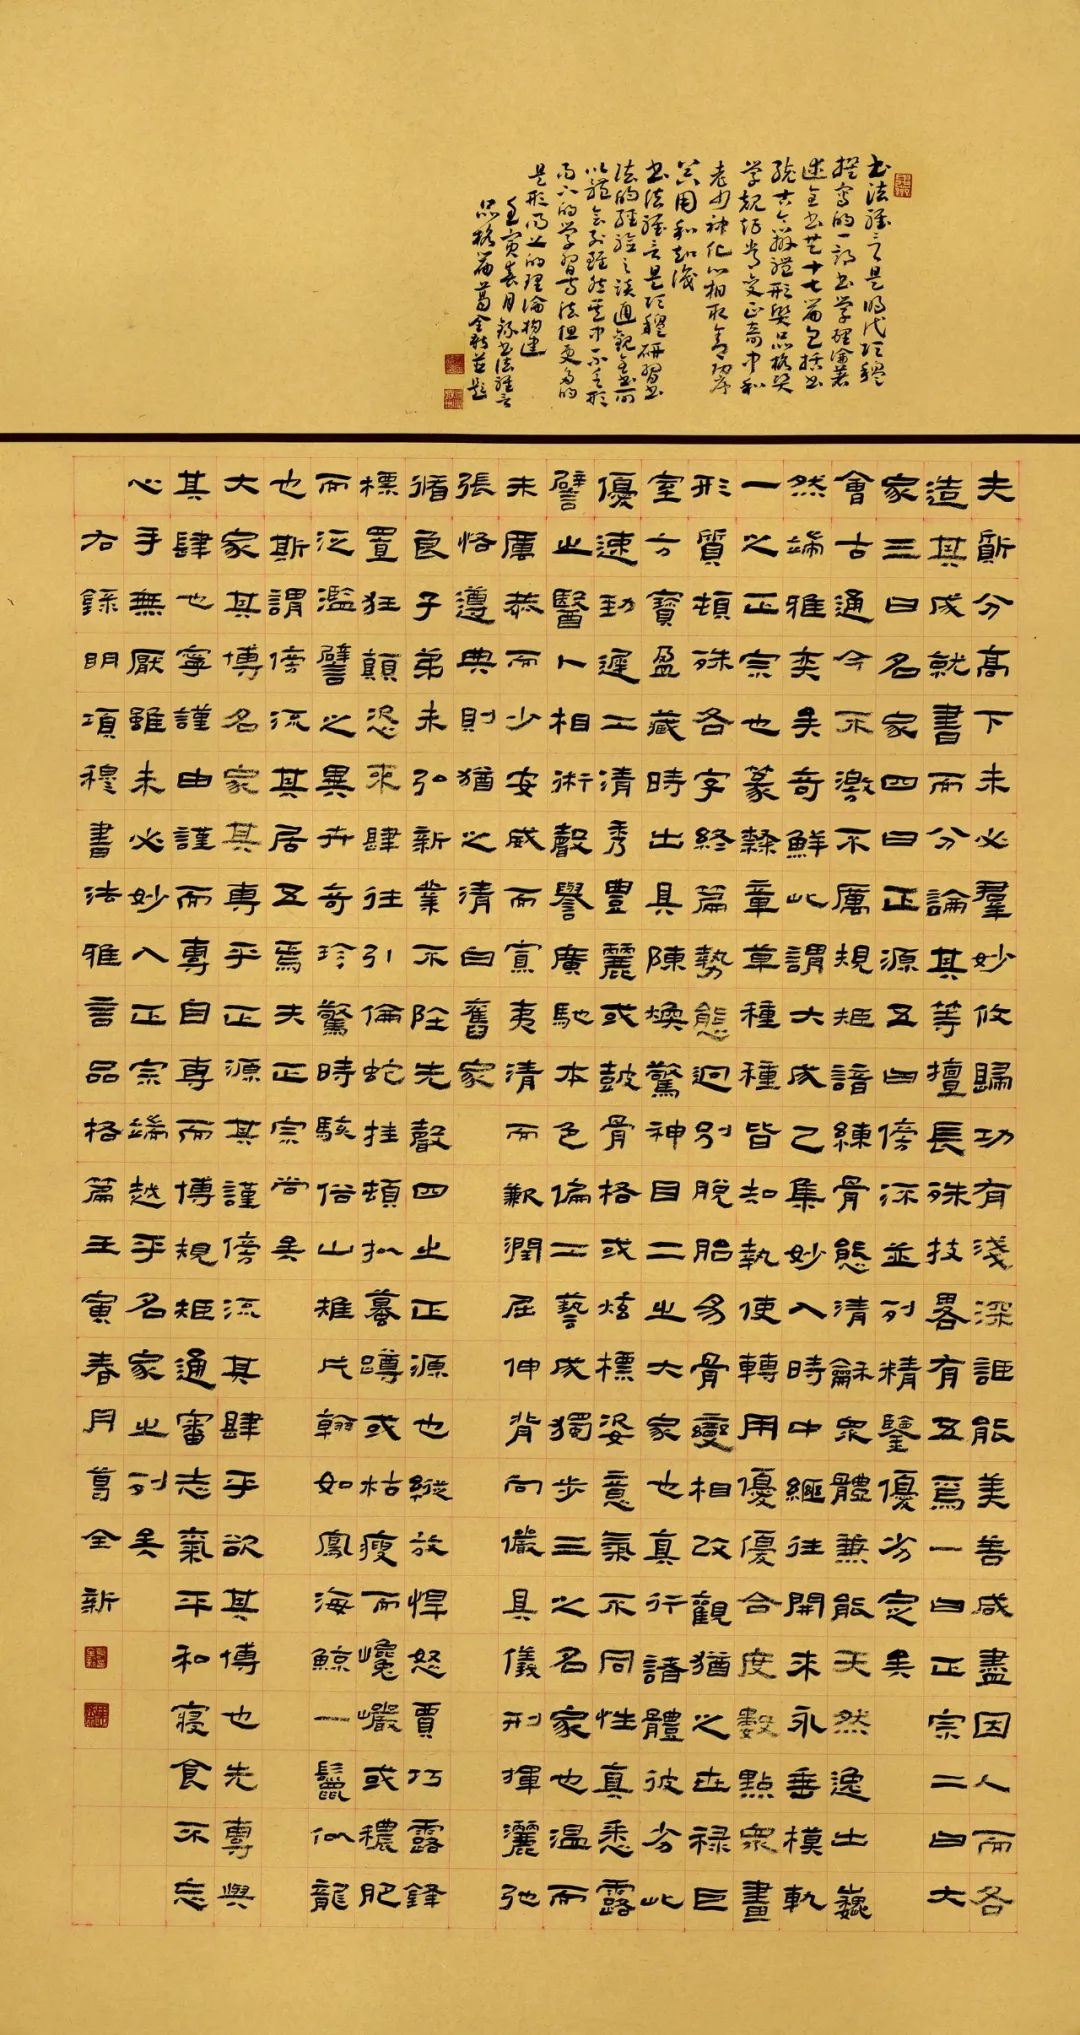 书法雅言是明代项穆
撰写的一部书学理论著
述全书共十七篇包括书
统古今辨体形质品格资
学规矩常变正奇中和
老少神化心相取舍功序
器用和知识
书法雅言是项穆研习书
法的经验之谈通观全书所
以體会列虽然其中不乏形
而下的学习方法但更多的
是形而上的理论构建
壬寅春月録书法雅言
品格篇葛全新並题
夫質分高下未必羣妙攸歸功有淺深詎能美善咸盡因人而各
造其成就書而分論其等擅長殊技畧有五焉一曰正宗二曰大
家三曰名家四曰正源五曰傍流並列精鑒優劣定矣
會古通今不激不厲規矩諳練骨態清龢衆體兼能天然逸出巍
然端雅奕矣奇鮮此謂大成已集妙入時中繼往開來永垂模軌
一之正宗也篆隸章草種種皆知執使轉用優優合度數點衆畫
形質頓殊各字終篇勢態迥别脫胎易骨變相改觀猶之世祿巨
室方寶盈藏時出具陳煥驚神目二之大家也真行諸體彼劣此
優速勁遲工清秀豐麗或鼓骨格或炫標姿意氣不同性真悉露
譬之醫卜相術聲譽廣馳本色偏工藝成獨步三之名家也温而
未厲恭而少安威而寡夷清而歉潤屈伸背向儼具儀刑揮灑弛
張恪遵典則猶之清白舊家
循良子弟未弘新業不先聲四之正源也縱放悍怒賈巧露鋒
標置狂顛恣來肆往引倫蛇挂頓拟蟇蹲或枯瘦而巉巖或穠肥
而泛濫譬之異卉奇珍驚時駭俗山雉片翰如鳳海鯨一鬣似龍
也斯謂傍流其居五焉夫正宗尚矣
大家其博名家其專乎正源其謹傍流其肆乎欲其博也先專與
其肆也寧謹由謹而專自專而博規矩通審志氣平和寢食不忘
心手無厭雖未必妙入正宗端越乎名家之列矣
右錄明項穆書法雅言品格篇壬寅春月葛全新